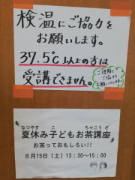 検温にご協力を
お願いします。
37.5℃以上の方は
受講できません。
夏休み子どもお茶講座
なつやす
こ
ちゃこうざ
お茶っておもしろい!!
8月15日(土)13:30~15:00